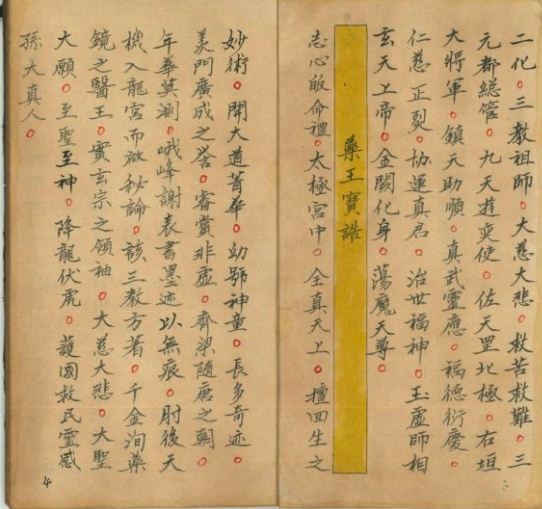 二化。三教祖師。大慈大悲。救苦救難。三
元都總管。九天遊奕使。佐天罡北極。右垣
大將軍。鎮天助順。真武靈應。福德衍慶。
仁慈正烈。協運真君。治世福神。玉虛師相
玄天上帝。金闕化身。蕩魔天尊。
藥王寶誥
志心皈命禮。太極宮中。全真天上。擅回生之
妙術。開大道菁華。幼號神童。長多奇迹。
羨門廣成之公。睿賞非虛。齊梁隨唐之朝。
年華莫測。峨峰謝表書墨迹以無痕。肘後天
機入龍宮而啟秘論。該三教方書。千金洵藥
鏡之醫王。實玄宗之領袖。大慈大悲。大聖
大願。至聖至神。降龍伏虎。護國救民靈感
孫大真人。
4